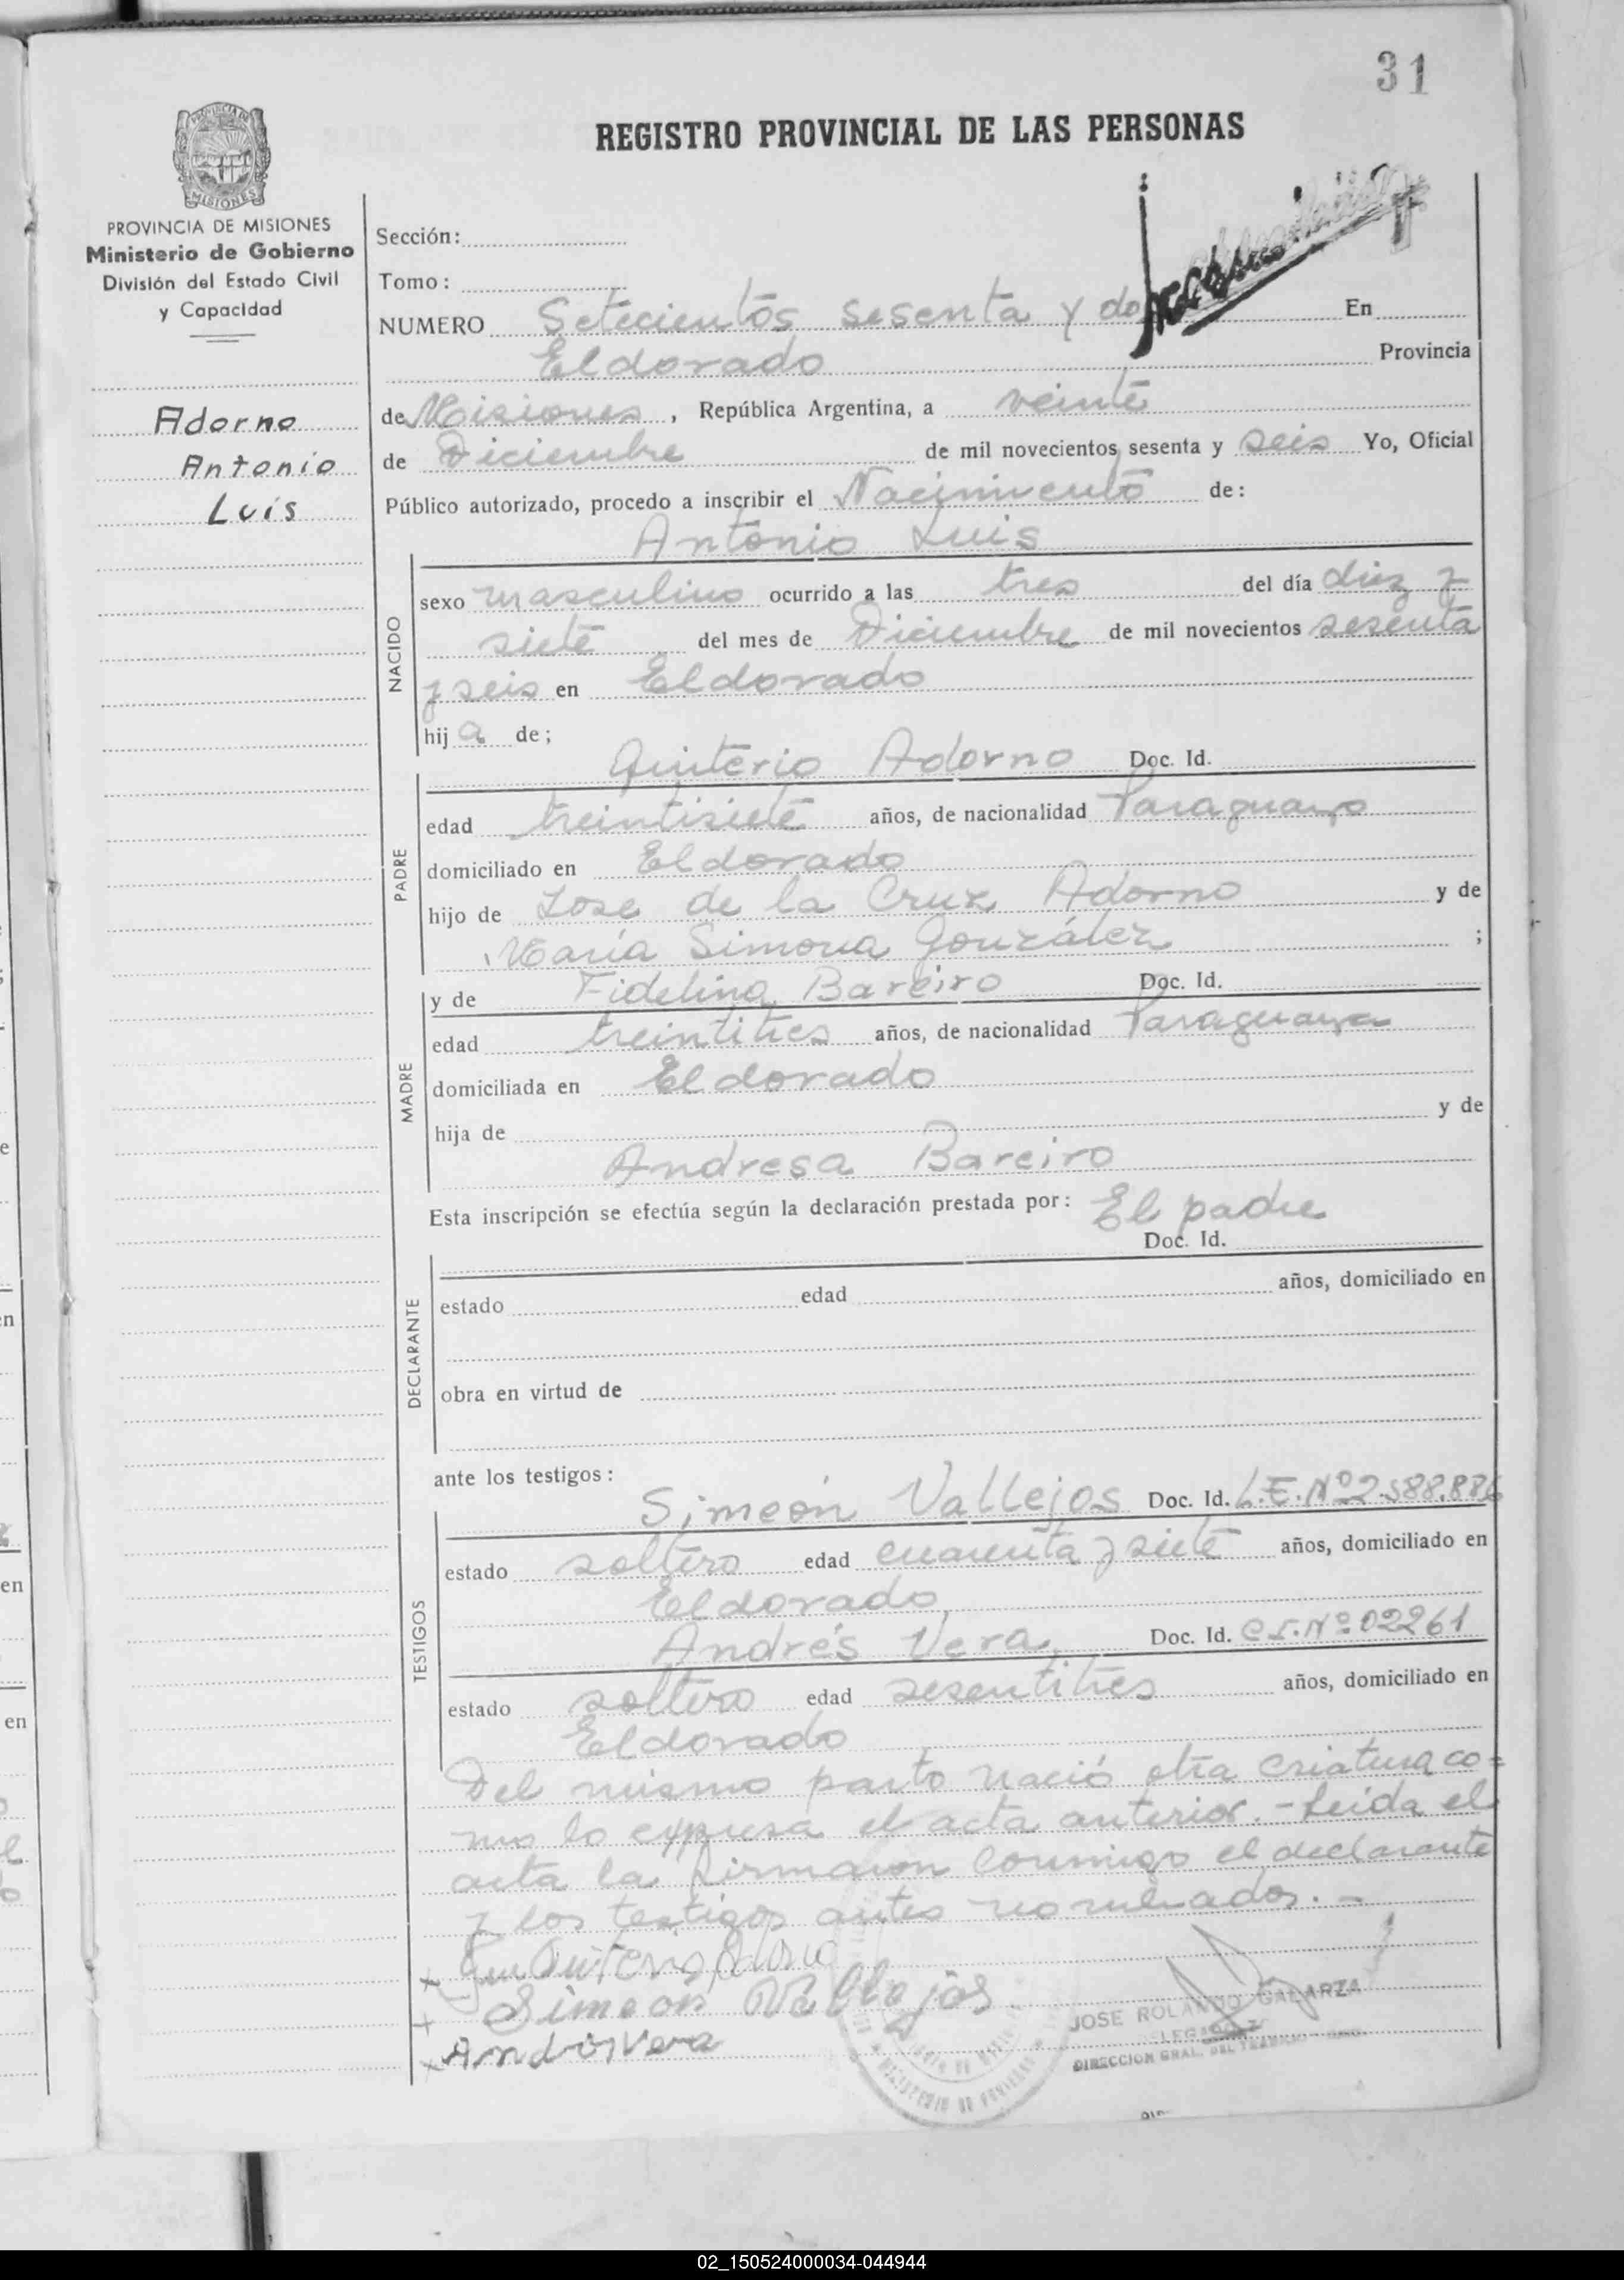 31
REGISTRO PROVINCIAL DE LAS PERSONAS
PROVINCIA DE MISIONES
Ministerio de Gobierno
División del Estado Civil
y Capacidad
Adorno
Antonio
Luís
Sección:
Tomo:
NUMERO Setecientos sesenta y dos En
Eldorado Provincia
de Misiones, República Argentina, a veinte
de Diciembre de mil novecientos sesenta y seis Yo, Oficial
Público autorizado, procedo a inscribir el Nacimiento de:
Antonio Luis
NACIDO
sexo masculino ocurrido a las tres del día diez y
siete del mes de Diciembre de mil novecientos sesenta
y seis en Eldorado
hij a de;
Quiterio Adorno Doc. Id.
PADRE
edad treintisiete años, de nacionalidad Paraguayo
domiciliado en Eldorado
hijo de Jose de la Cruz Adorno y de
María Simona González ;
y de Fidelina Bareiro Doc. Id.
MADRE
edad treintitres años, de nacionalidad Paraguaya
domiciliada en Eldorado
hija de y de
Andresa Bareiro
Esta inscripción se efectúa según la declaración prestada por: El padre
Doc. Id.
DECLARANTE
estado edad años, domiciliado en
obra en virtud de
ante los testigos:
Simeón Vallejos Doc. Id. L.E. Nº 2.588.886
TESTIGOS
estado soltero edad cuarenta y siete años, domiciliado en
Eldorado
Andrés Vera Doc. Id. C.I. Nº 02261
estado soltero edad sesentitres años, domiciliado en
Eldorado
Del mismo parto nació otra criatura co=
mo lo expresa el acta anterior.- Leida el
acta la firmaron conmigo el declarante
y los testigos antes nombrados.-
Quiterio Adorno
Simeon Vallejos
Andres Vera
JOSE ROLANDO GALARZA
DIRECCION GRAL. DEL
02_150524000034-044944